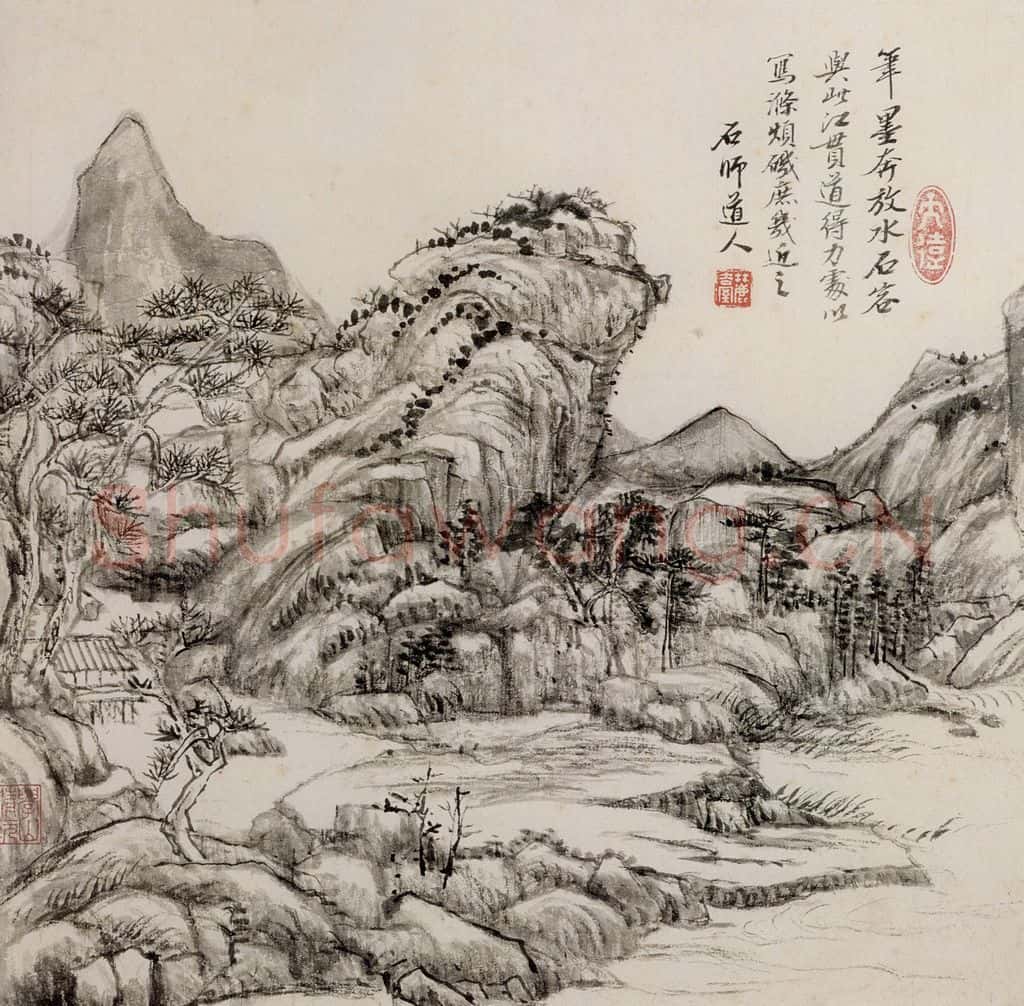 筆墨奔放水石容
與此江貫道得力處以
寫滌煩磯庶幾近之
石師道人
Shufawang.CN